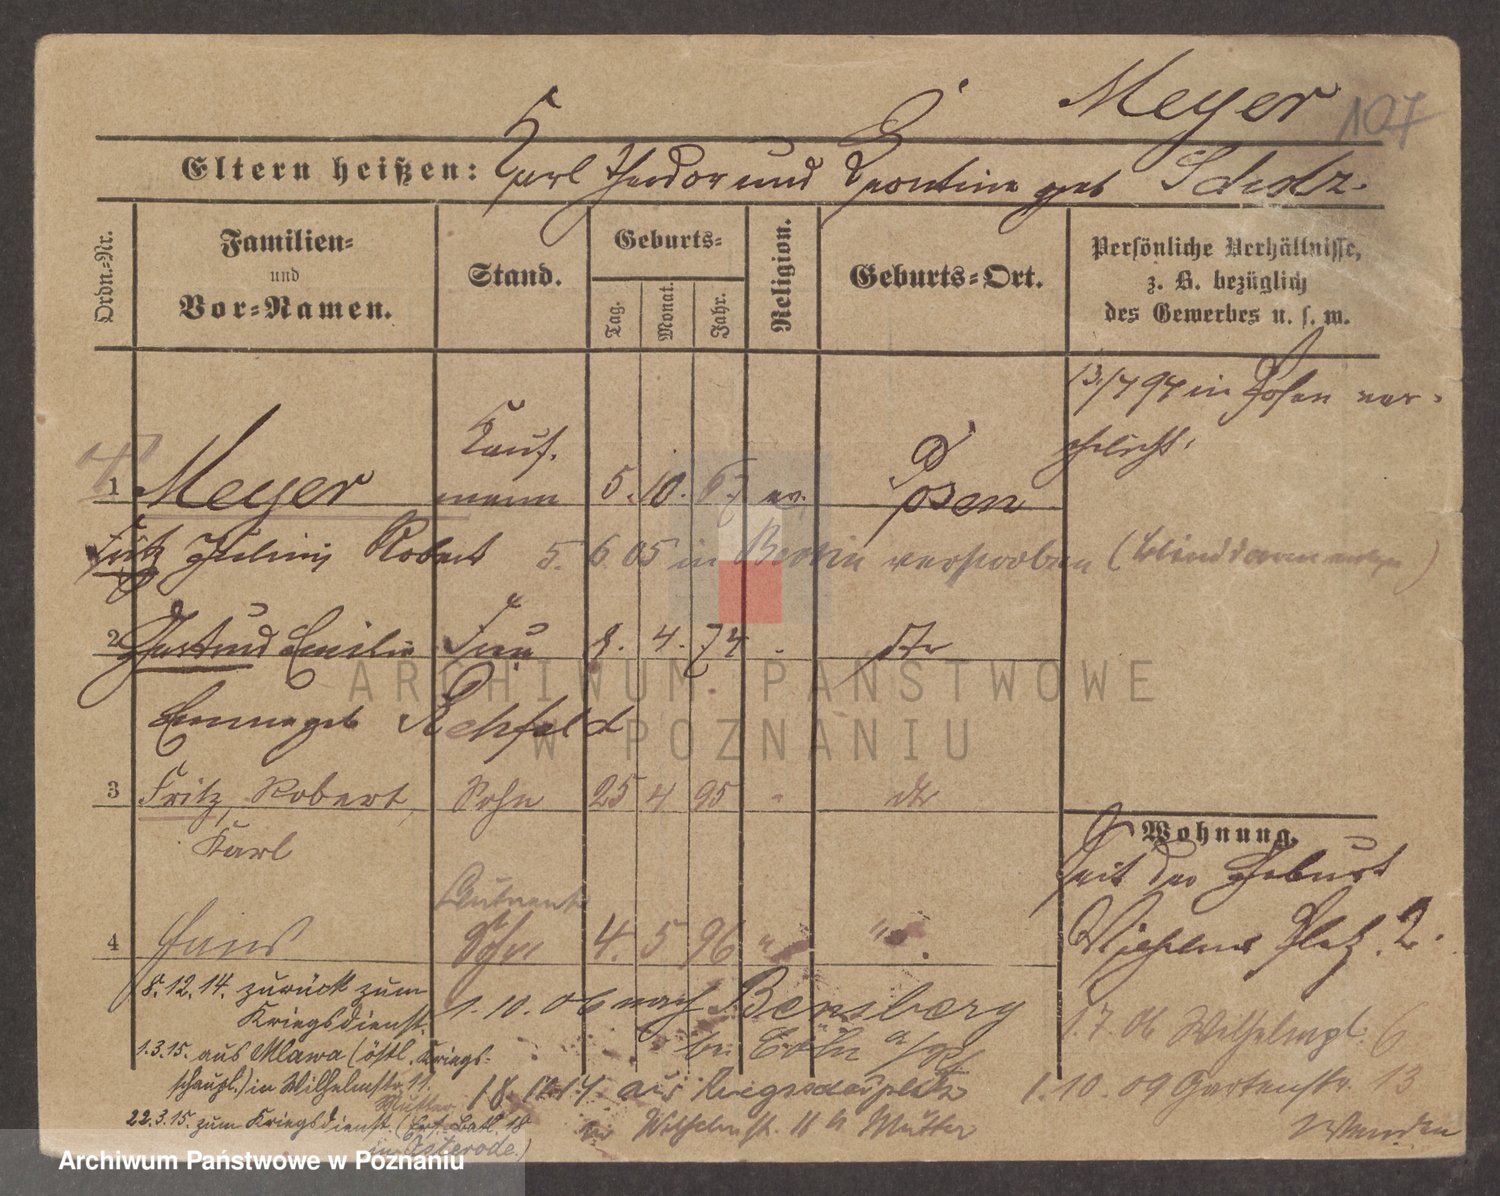 Meyer 107
Eltern heißen: Karl Theodor und Leontine geb Scholz.
Ordn.=Nr.
Familien=
und
Vor=Namen.
Stand.
Geburts=
Tag.
Monat.
Jahr.
Religion.
Geburts=Ort.
Persönliche Verhältnisse,
z. B. bezüglich
des Gewerbes u. s. w.
13/7 94 in Posen ver-
ehelicht.
1 Meyer Kauf-
mann 5. 10. 67 ev. Posen
Fritz Julius Robert 5. 6 05 in Berlin verstorben (Blinddarm
2 Gertrud Emilie Frau 8. 4. 74 dto
Emma geb Rehfeld
3 Fritz, Robert, Sohn 25 4 95 " dto
Karl
4 Hans Sohn 4. 5 96 " "
Wohnung.
Seit der Geburt
Wilhelms Platz 2.
1.7.06 Wilhelmpl. 6
1.10.09 Gartenstr. 13
8.12.14. zurück zum
Kriegsdienst.
1.10.06 nach Bensberg
bei Cöln a/Rh
1.3.15. aus Mlawa (östl. Kriegs-
schaupl.) in Wilhelmstr. 11.
Mutter
18.11.14. aus Kriegsschauplatz
in Wilhelmst. 11 b Mutter
22.3.15. zum Kriegsdienst. (Ers. Batl. 18
in Osterode.)
ARCHIWUM PAŃSTWOWE
W POZNANIU
Archiwum Państwowe w Poznaniu